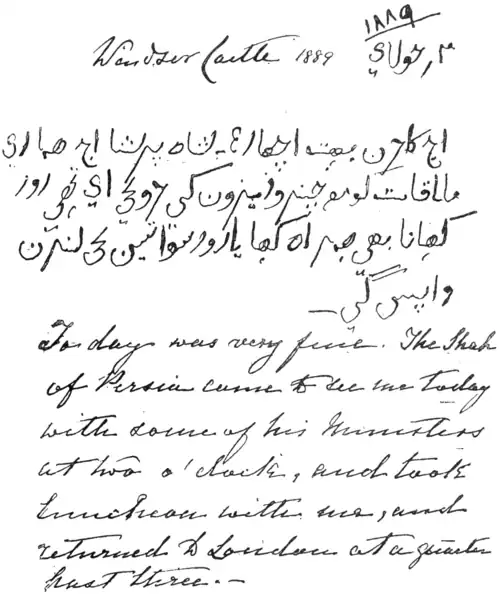 Windsor Castle 1889
۱۸۸۹
۳ جولاي
اج کا دن بہت اچھا رہا۔ شاہ پرشنا اج ہماري
ملاقات کو مع چند وزیرون کی
کہانا بھی ہمراہ کہایا اور سوا تین بجی لندن
واپس گئی۔
To day was very fine. The Shah
of Persia came to see me today
with some of his Ministers
at two o'clock, and took
luncheon with me, and
returned to London at a quarter
past three.–